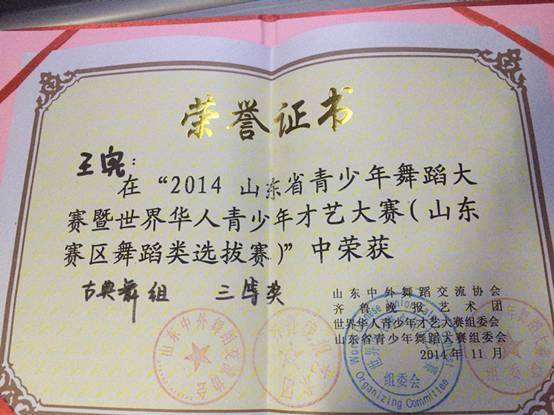 荣誉证书
王宪：
在“2014 山东省青少年舞蹈大
赛暨世界华人青少年才艺大赛（山东
赛区舞蹈类选拔赛）”中荣获
古典舞组 三等奖
山东中外舞蹈交流协会
齐鲁晚报艺术团
世界华人青少年才艺大赛组委会
山东省青少年舞蹈大赛组委会
2014年11月
山东中外舞蹈交流协会
组委会
Organizing Committee